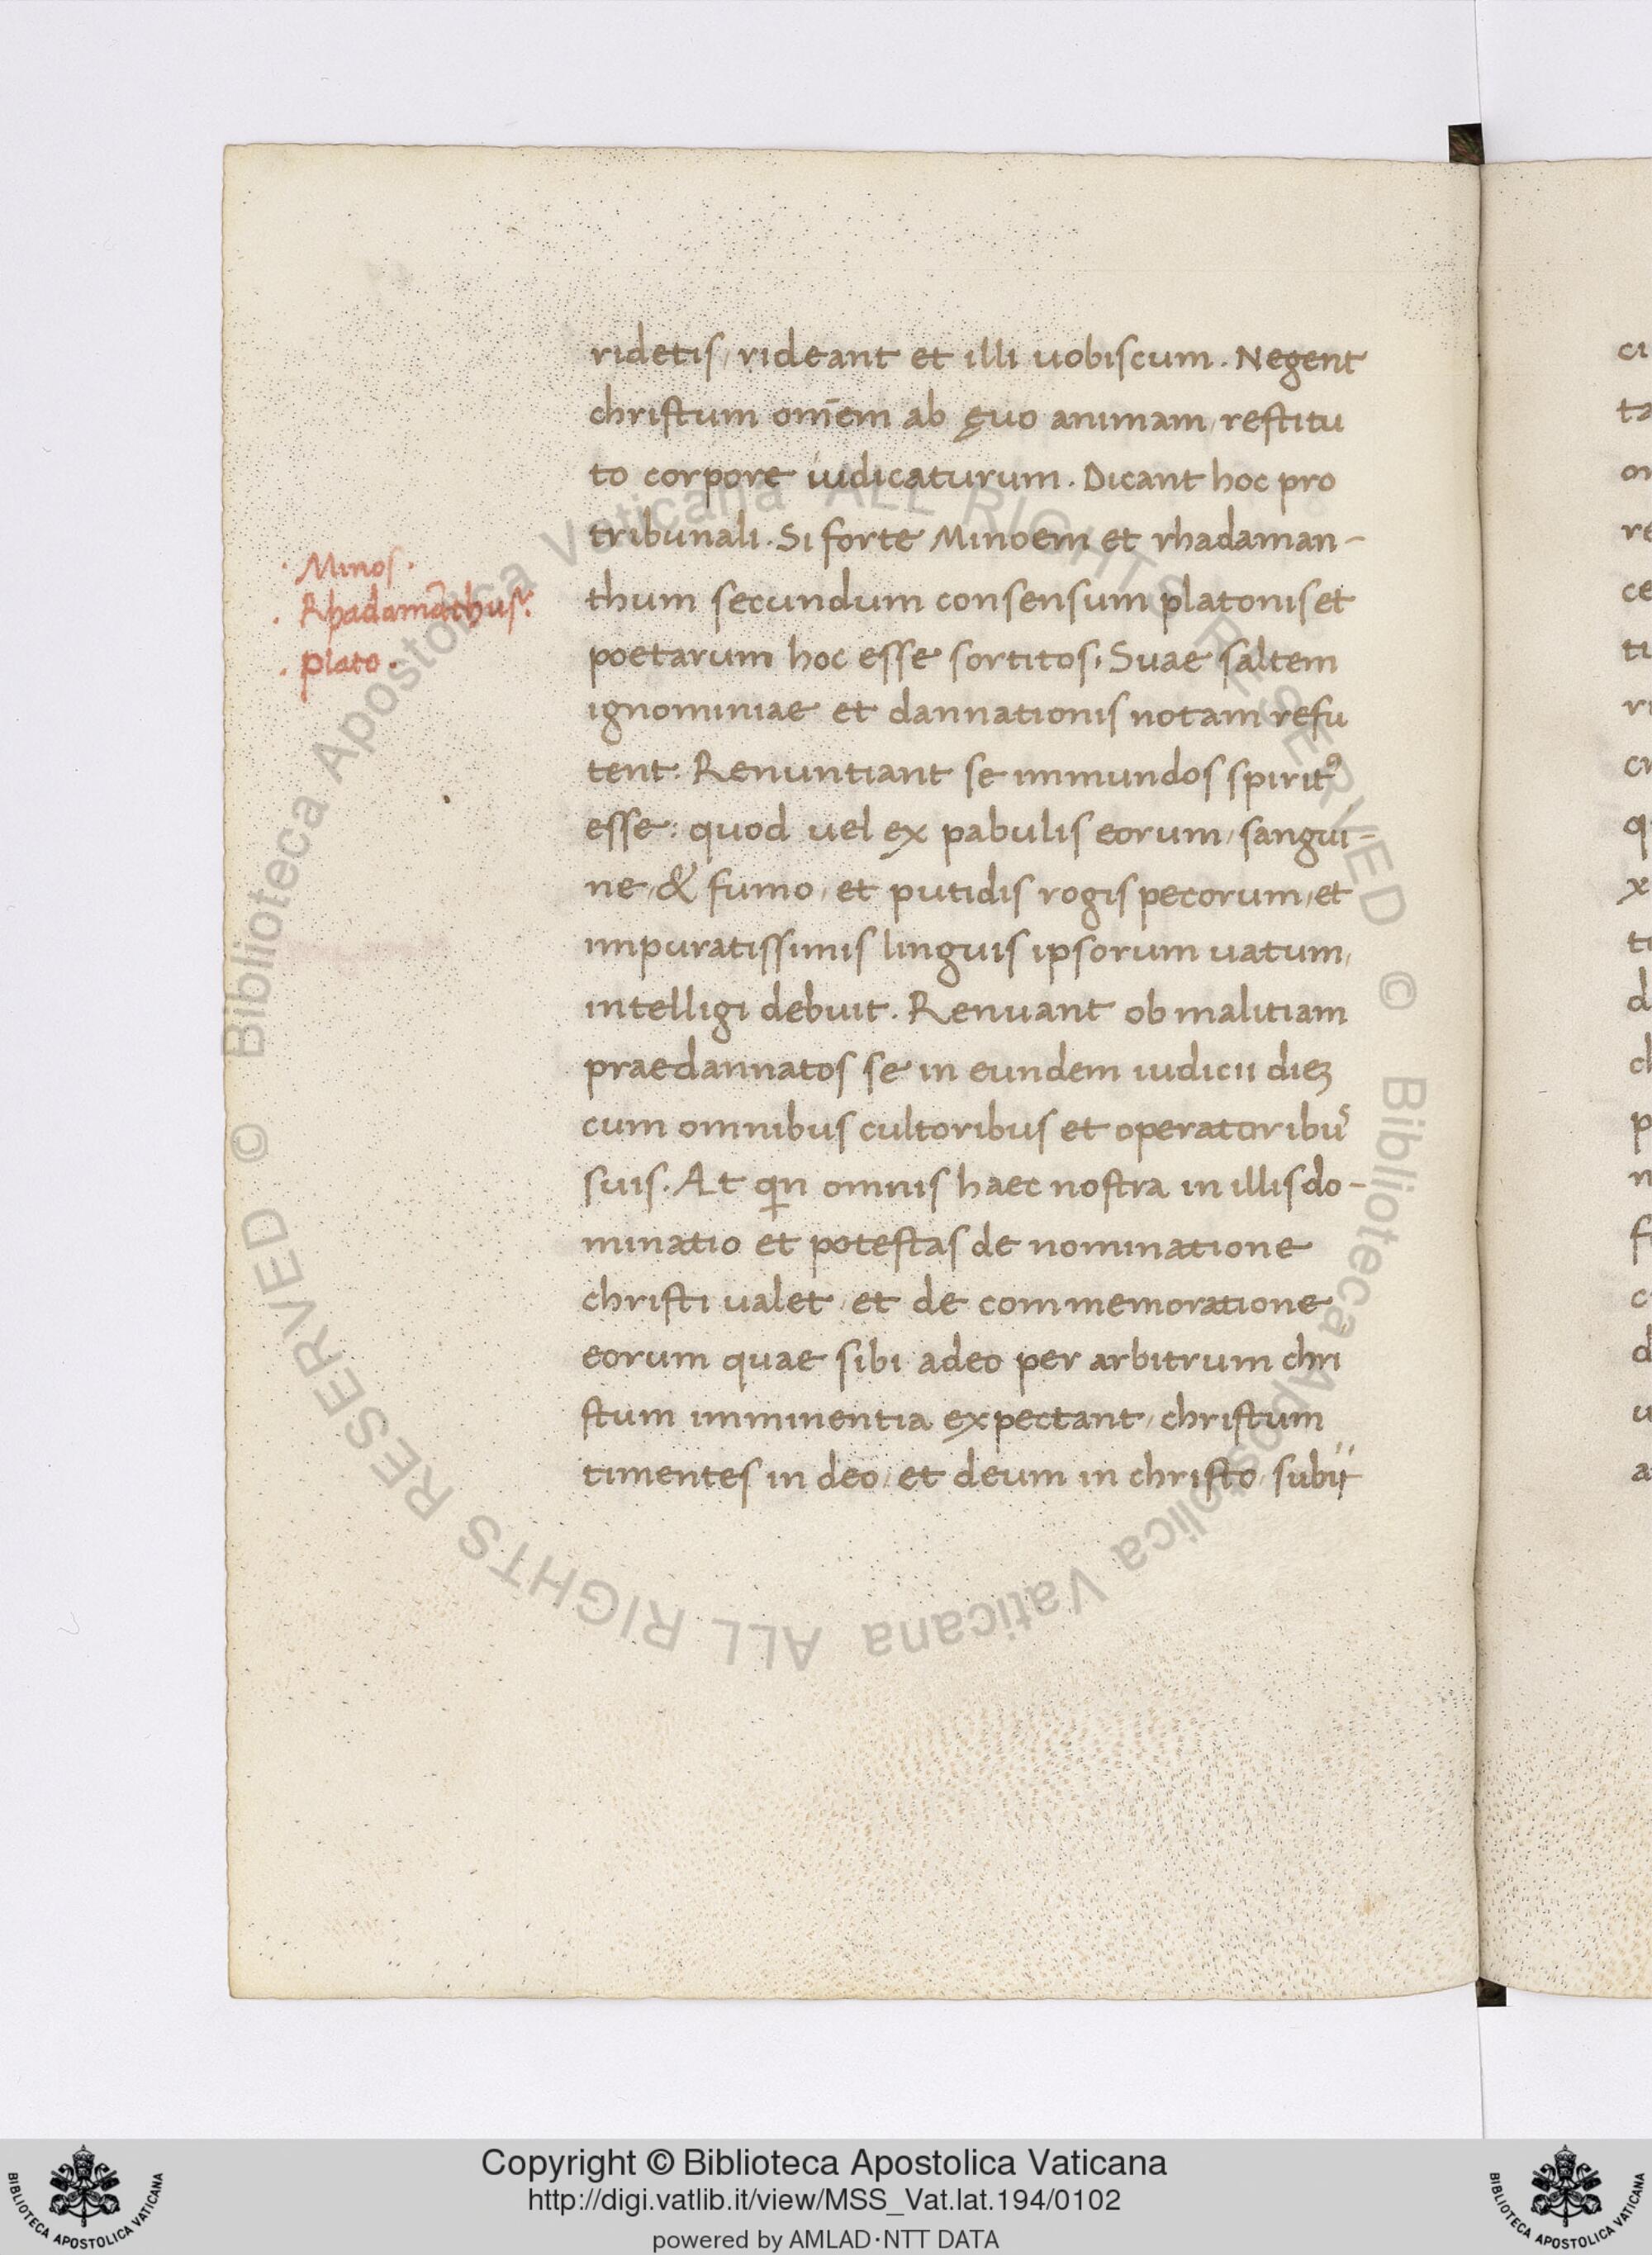 ridetis, rideant et illi uobiscum. Negent
christum om̄em ab ęuo animam, restitu
to corpore iudicaturum. Dicant hoc pro
tribunali. Si forte Minoem et rhadaman-
thum secundum consensum platonis et
poetarum hoc esse sortitos. Suae saltem
ignominiae et dannationis notam refu
tent. Renuntiant se immundos spiritꝰ
esse: quod uel ex pabulis eorum, sangui-
ne, & fumo, et putidis rogis pecorum, et
impuratissimis linguis ipsorum uatum,
intelligi debuit. Renuant ob malitiam
praedannatos se in eundem iudicii dieꝫ
cum omnibus cultoribus et operatoribus
suis. At qin omnis haec nostra in illis do-
minatio et potestas de nominatione
christi ualet, et de commemoratione
eorum quae sibi adeo per arbitrum chri
stum imminentia expectant, christum
timentes in deo, et deum in christo, subii
. Minos .
. Rhadamāthus.
. Plato .
ci
ta
re
ce
ti
x
d
p
a
Biblioteca Apostolica Vaticana ALL RIGHTS RESERVED © Biblioteca Apostolica Vaticana ALL RIGHTS RESERVED ©
Copyright © Biblioteca Apostolica Vaticana
http://digi.vatlib.it/view/MSS_Vat.lat.194/0102
powered by AMLAD·NTT DATA
BIBLIOTECA APOSTOLICA VATICANA
BIBLIOTECA APOSTOLICA VATICANA